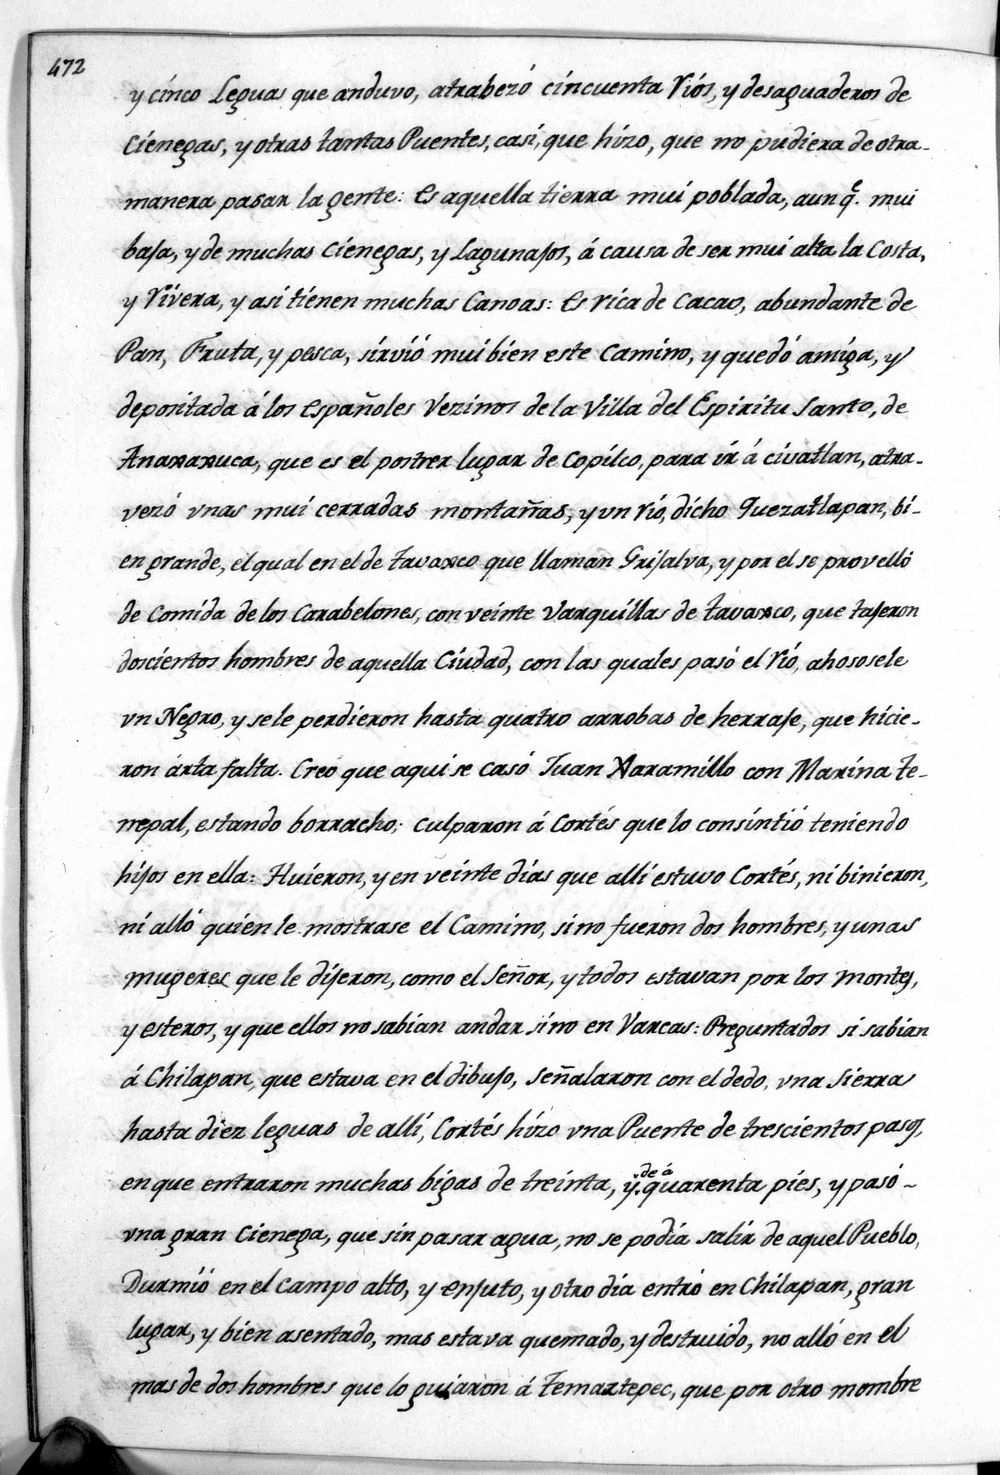 472
y cinco Leguas que anduvo, atrabezó cincuenta Riós, y desaguaderos de
Cienegas, y otras tantas Puentes, casi, que hizo, que no pudiera de otra-
manera pasar la gente: Es aquella tierra mui poblada, aunq.e mui
baja, y de muchas Cienegas, y Lagunajos, á causa de ser mui alta la Costa,
y Rivera, y asi tienen muchas Canoas: Es rica de Cacao, abundante de
Pan, Fruta, y pesca, sirvió mui bien este Camino, y quedó amiga, y
depositada á los Españoles Vezinos de la Villa del Espiritu Santo, de
Anaxaxuca, que es el postrer lugar de Copilco, para ir á civatlan, atra-
vezó vnas mui cerradas montañas, y vn rió, dicho Quezatlapan, bi-
en grande, el qual en el de tavaxco que llaman Grijalva, y por el se provelló
de Comida de los Carabelones, con veinte Varquillas de tavaxco, que tajeron
doscientos hombres de aquella Ciudad, con las quales pasó el rió, ahososele
vn Negro, y sele perdieron hasta quatro arrobas de herraje, que hicie-
ron árta falta. Creo que aqui se casó Juan Xaramillo con Marina te-
nepal, estando borracho: Culparon á Cortés que lo consintió teniendo
hijos en ella: Huieron, y en veinte dias que alli estuvo Cortés, ni binieron,
ni alló quien le mostrase el Camino, sino fueron dos hombres, y unas
mugeres que le dijeron, como el Señor, y todos estavan por los montes,
y esteros, y que ellos no sabian andar sino en Varcas: Preguntados si sabian
á Chilapan, que estava en el dibujo, señalaron con el dedo, vna Sierra
hasta diez leguas de alli, Cortés hizo vna Puente de trescientos pasos,
en que entraron muchas bigas de treinta, y de á quarenta pies, y pasó ~
vna gran Cienega, que sin pasar agua, no se podia salir de aquel Pueblo,
Durmió en el Campo alto, y enjuto, y otro dia entró en Chilapan, gran
lugar, y bien asentado, mas estava quemado, y destruido, no alló en el
mas de dos hombres que lo guiaron á Temaztepec, que por otro mombre